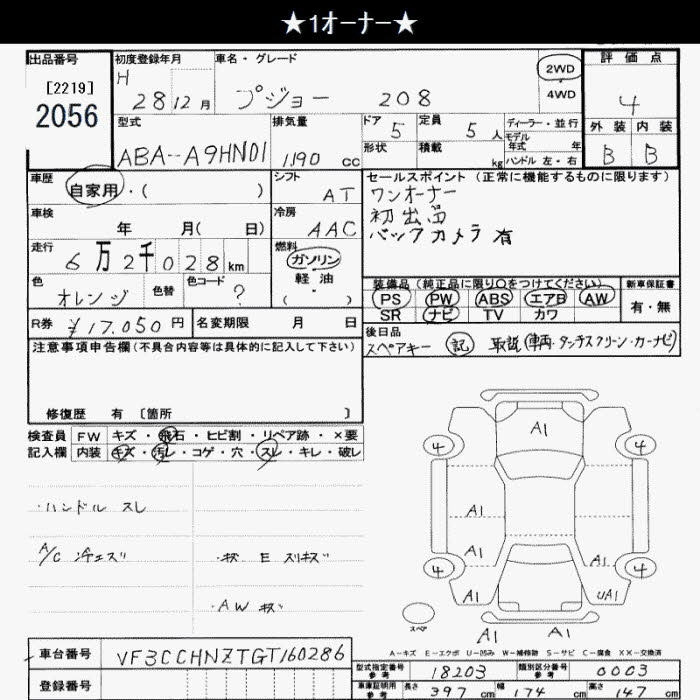 ★1オーナー★
出品番号
[2219]
2056
初度登録年月
H 28 12 月
車名・グレード
プジョー 208
2WD
4WD
評価点
4
外装 内装
B B
型式
ABA-A9HN01
排気量
1190 cc
ドア 5
定員 5 人
形状
積載 kg
ディーラー・並行
モデル年式 年
ハンドル 左・右
車歴
自家用・( )
シフト
AT
車検
年 月( 日)
冷房
AAC
走行
6万2千028km
燃料
ガソリン
軽油
( )
色
オレンジ
色替
色コード
?
R券 ¥17,050円
名変期限 月 日
セールスポイント (正常に機能するものに限ります)
ワンオーナー
初出品
バックカメラ有
装備品 (純正品に限り○をつけてください)
PS PW ABS エアB AW
SR ナビ TV カワ
新車保証書
有・無
後日品
スペアキー 記 取説(車両・タッチスクリーン・カーナビ)
注意事項申告欄(不具合内容等は具体的に記入して下さい)
修復歴 有 〔箇所 〕
検査員記入欄
FW キズ・飛石・ヒビ割・リペア跡・×要
内装 キズ・汚レ・コゲ・穴・スレ・キレ・破レ
・ハンドル スレ
A/C
・キズ E スリキズ
・AW キズ
A1
4 4
A1
A1 A1
4 4
A1 UA1
A1 A1
スペア
A-キズ E-エクボ U-凹み W-補修跡 S-サビ C-腐食 XX-交換済
車台番号
VF3CCHNZTGT160286
登録番号
型式指定番号 参考 18203
類別区分番号 参考 0003
車庫証明用 参考 長さ 397 cm 幅 174 cm 高さ 147 cm